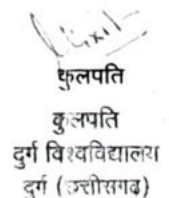 कुलपति
कुलपति
दुर्ग विश्वविद्यालय
दुर्ग (छत्तीसगढ़)